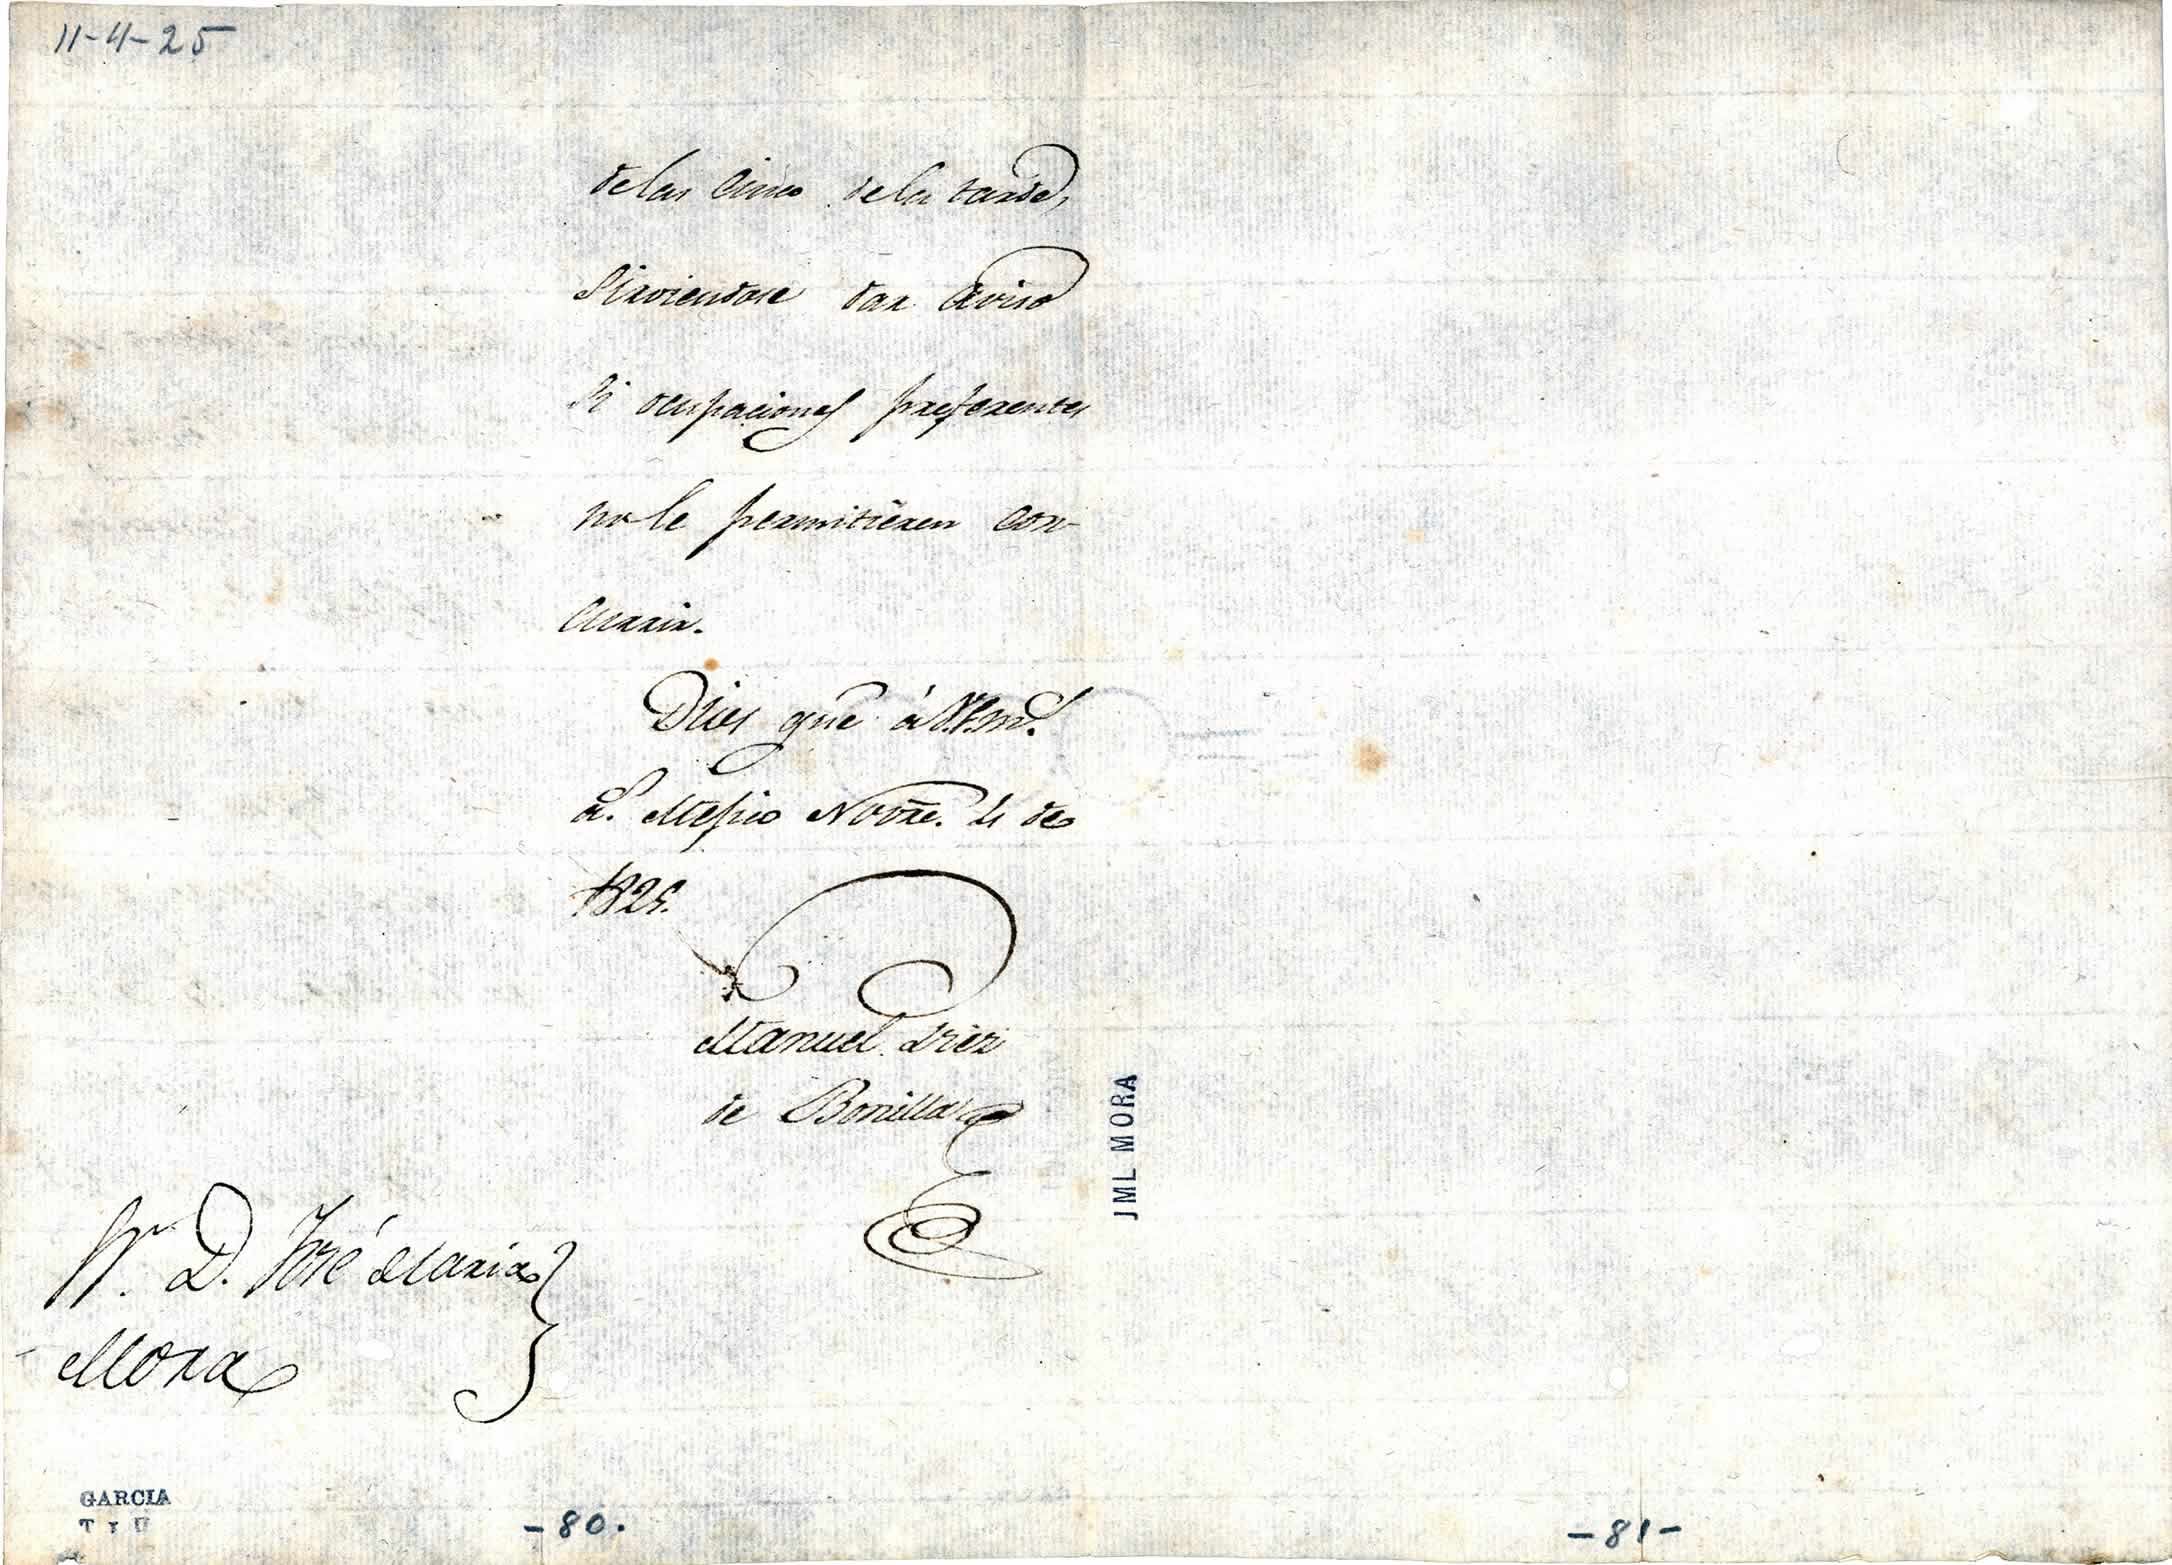 11-4-25
delas Cinco dela tarde,
Sirviendose dar aviso
Si ocupaciones preferentes
no le permitieren con-
currir.
Dios gue à V. S. ms.
as. Mexico Novre. 4 de
1825.
Manuel Diez
de Bonilla
Sr. D. José Maria
Mora
JML MORA
GARCIA
- 80.
- 81 -